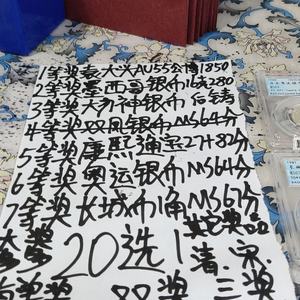 1等奖袁大头AU55公博1850
2等奖墨西哥银币16克280
3等奖大力神银币后铸
4等奖双凤银币MS64分
5等奖康熙通宝82分
6等奖奥运银币MS64分
7等奖长城币1角MS67分
20选1
清宋
双奖三奖